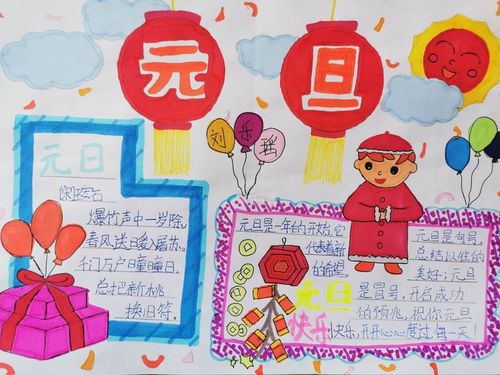 元旦
刘乐瑶
元日
安石
爆竹声中一岁除,
春风送暖入屠苏。
千门万户曈曈日,
总把新桃
换旧符。
元旦是一年的开始,它
代表着新
的希望
元旦
快乐
元旦是句号,
总结以往的
美好;元旦
是冒号,开启成功
的预兆,祝你元旦
快乐,开开心心度过每一天!